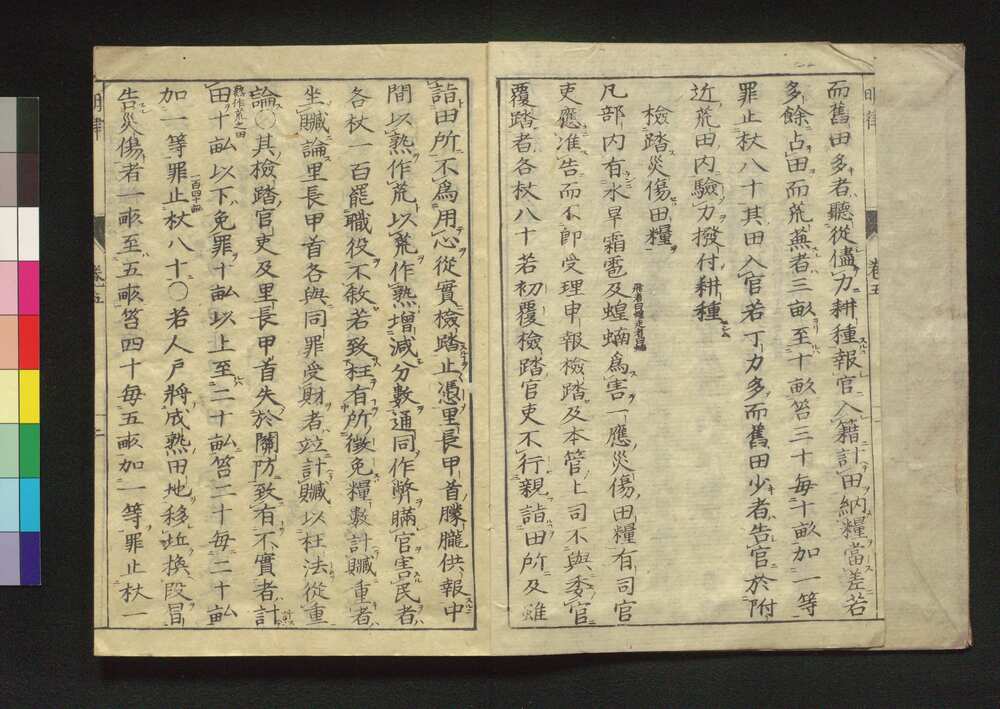 而舊田多者聽從儘力耕種報官入籍計田納糧當差若
多餘占田而荒蕪者三畝至十畝笞三十每十畝加一等
罪止杖八十其田入官若丁力多而舊田少者告官於附
近荒田内驗力撥付耕種
檢踏災傷田糧
凡部内有水旱霜雹及蝗蝻爲害一應災傷田糧有司官
吏應准告而不即受理申報檢踏及本管上司不與委官
覆踏者各杖八十若初覆檢踏官吏不行親詣田所及雖
詣田所不爲用心從實檢踏止憑里長甲首朦朧供報中
間以熟作荒以荒作熟增減分數通同作弊瞞官害民者
各杖一百罷職役不敘若致枉有所徵免糧數計贓重者
坐贓論里長甲首各與同罪受財者竝計贓以枉法從重
論〇其檢踏官吏及里長甲首失於關防致有不實者計
熟作荒之田
田十畝以下免罪十畝以上至二十畝笞二十每二十畝
一百四十畝
加一等罪止杖八十〇若人戸將成熟田地移坵換段冒
告災傷者一畝至五畝笞四十每五畝加一等罪止杖一
明律
卷五
明律
卷五